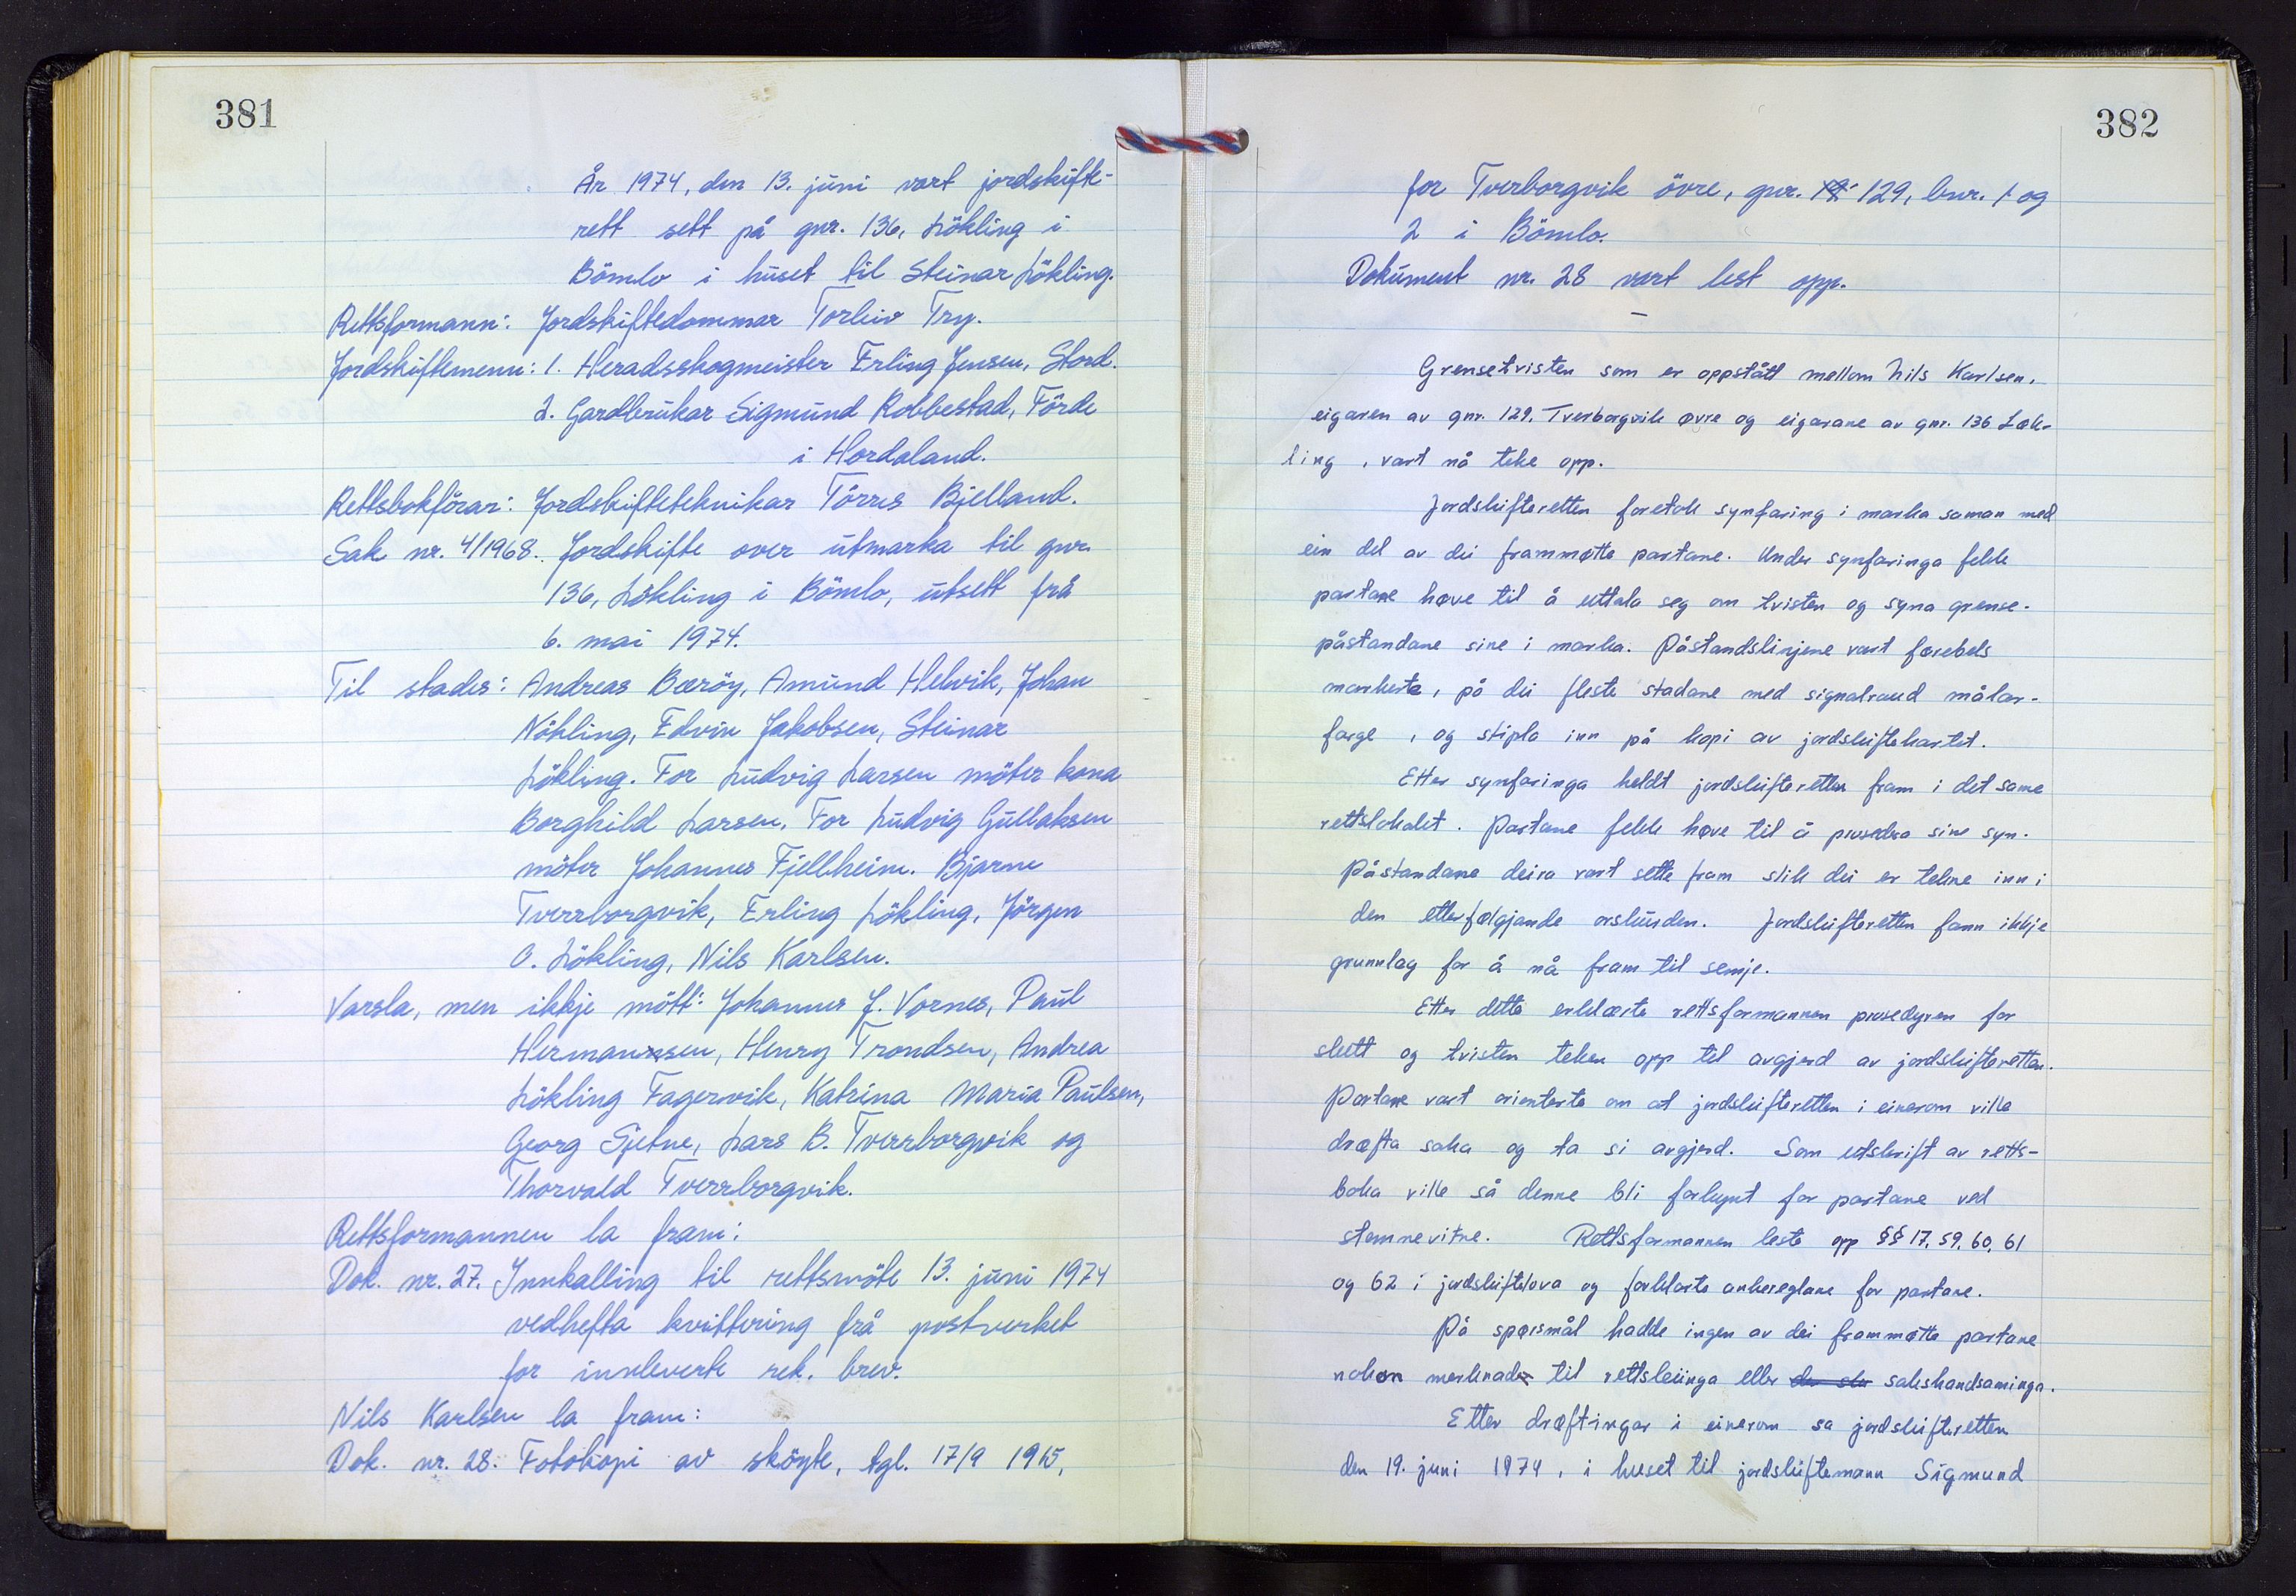 381
År 1974, den 13. juni vart jordskifte-
rett sett på gnr. 136, Lökling i
Bömlo i huset til Steinar Lökling.
Rettsformann: Jordskiftedommar Torleiv Try.
Jordskiftemenn: 1. Heradsskogmeister Erling Jensen, Stord.
2. Gardbrukar Sigmund Robbestad, Förde
i Hordaland.
Rettsbokförar: Jordskifteteknikar Törres Bjelland.
Sak nr. 4/1968. Jordskifte over utmarka til gnr.
136, Lökling i Bömlo, utsett frå
6. mai 1974.
Til stades: Andreas Beröy, Amund Helvik, Johan
Nökling, Edvin Jakobsen, Steinar
Lökling. For Ludvig Larsen möter kona
Borghild Larsen. For Ludvig Gullaksen
möter Johannes Fjellheim. Bjarne
Tverrborgvik, Erling Lökling, Jörgen
O. Lökling, Nils Karlsen.
Varsla, men ikkje mött: Johannes J. Vornes, Paul
Hermansen, Henry Trondsen, Andrea
Lökling Fagervik, Katrina Maria Paulsen,
Georg Sjetne, Lars B. Tverrborgvik og
Thorvald Tverrborgvik.
Rettsformannen la fram:
Dok. nr. 27. Innkalling til rettsmöte 13. juni 1974
vedhefta kvittering frå postverket
for innleverte rek. brev.
Nils Karlsen la fram:
Dok. nr. 28. Fotokopi av sköyte, tgl. 17/9 1915,
382
for Tverborgvik övre, gnr. 129, bnr. 1 og
2 i Bömlo.
Dokument nr. 28 vart lest opp.
—
Grensetvisten som er oppstått mellom Nils Karlsen,
eigaren av gnr. 129. Tverborgvik øvre og eigarane av gnr. 136 Løk-
ling, vart nå teke opp.
Jordskifteretten foretok synfaring i marka saman med
ein del av dei frammøtte partane. Under synfaringa fekk
partane høve til å uttala seg om tvisten og syna grense-
påstandane sine i marka. Påstandslinjene vart førebels
markerte, på dei fleste stadane med signalraud målar-
farge, og stipla inn på kopi av jordskiftekartet.
Etter synfaringa heldt jordskifteretten fram i det same
rettslokalet. Partane fekk høve til å prosedera sine syn.
Påstandane deira vart sette fram slik dei er tekne inn i
den etterfølgjande orskurden. Jordskifteretten fann ikkje
grunnlag for å nå fram til semje.
Etter dette erklærte rettsformannen prosedyren for
slutt og tvisten teken opp til avgjerd av jordskifteretten.
Partane vart orienterte om at jordskifteretten i einerom ville
drøfta saka og ta si avgjerd. Som utskrift av retts-
boka ville så denne bli forkynt for partane ved
stemnevitne. Rettsformannen leste opp §§ 17, 59, 60, 61
og 62 i jordskiftelova og forklarte ankereglane for partane.
På spørsmål hadde ingen av dei frammøtte partane
nokon merknad til rettsleiinga eller sakshandsaminga.
Etter drøftingar i einerom sa jordskifteretten
den 19. juni 1974, i huset til jordskiftemann Sigmund